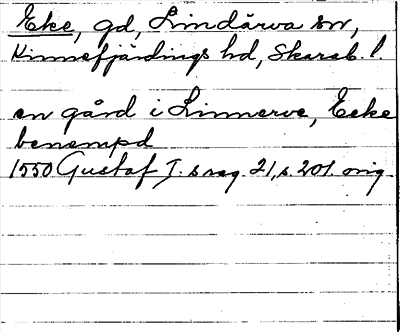 Eke, gd, Lindärva sn,
Kinnefjärdings hd, Skarab. l.
en gård i Linnerve, Ecke
benempd
1550 Gustaf I. s reg. 21, s. 201. orig.